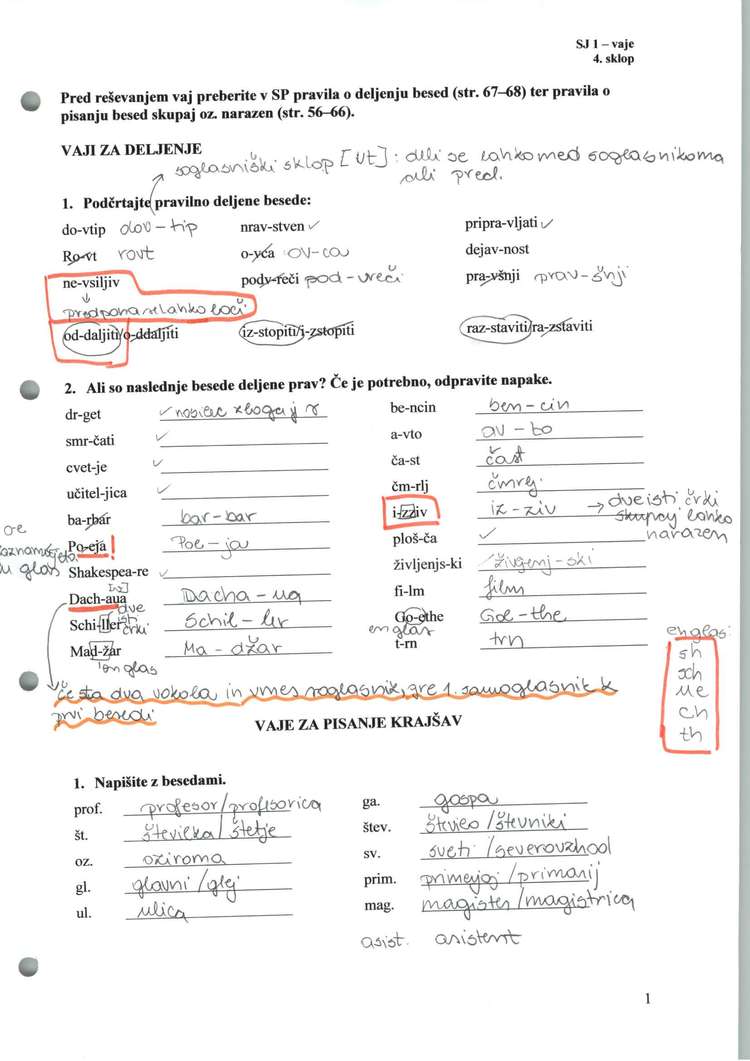 SJ 1 – vaje
4. sklop
Pred reševanjem vaj preberite v SP pravila o deljenju besed (str. 67–68) ter pravila o
pisanju besed skupaj oz. narazen (str. 56–66).
VAJI ZA DELJENJE
soglasniški sklop [ut]: deli se lahko med soglasnikoma
ali pred.
1. Podčrtajte pravilno deljene besede:
do-vtip dov-tip nrav-stven ✓ pripra-vljati ✓
Ro-vt rovt o-vca ov-ca dejav-nost
ne-vsiljiv podv-reči pod-vreči pra-všnji prav-šnji
predpona se lahko loči
od-daljiti/o-ddaljiti iz-stopiti/i-zstopiti raz-staviti/ra-zstaviti
2. Ali so naslednje besede deljene prav? Če je potrebno, odpravite napake.
dr-get ✓ nosilec zloga j r be-ncin ben-cin
smr-čati ✓ a-vto av-to
cvet-je ✓ ča-st čast
učitel-jica ✓ čm-rlj čmrlj
ba-rbar bar-bar i-zziv iz-ziv → dve isti črki skupaj lahko narazen
Po-eja ! Poe-ja ploš-ča ✓
Shakespea-re ✓ življenjs-ki življenj-ski
Dach-aua Dacha-ua fi-lm film
Schi-ller dve isti črki Schil-ler Go-ethe Goe-the
Mad-žar Ma-džar t-rn trn
en glas
en glas
en glas:
sh
sch
ue
ch
th
če sta dva vokala in vmes soglasnik, gre 1. samoglasnik k
prvi besedi
VAJE ZA PISANJE KRAJŠAV
1. Napišite z besedami.
prof. profesor/profesorica ga. gospa
št. številka/štetje štev. število/števniki
oz. oziroma sv. sveti/severovzhod
gl. glavni/glej prim. primerjaj/primarij
ul. ulica mag. magister/magistrica
asist. asistent
1